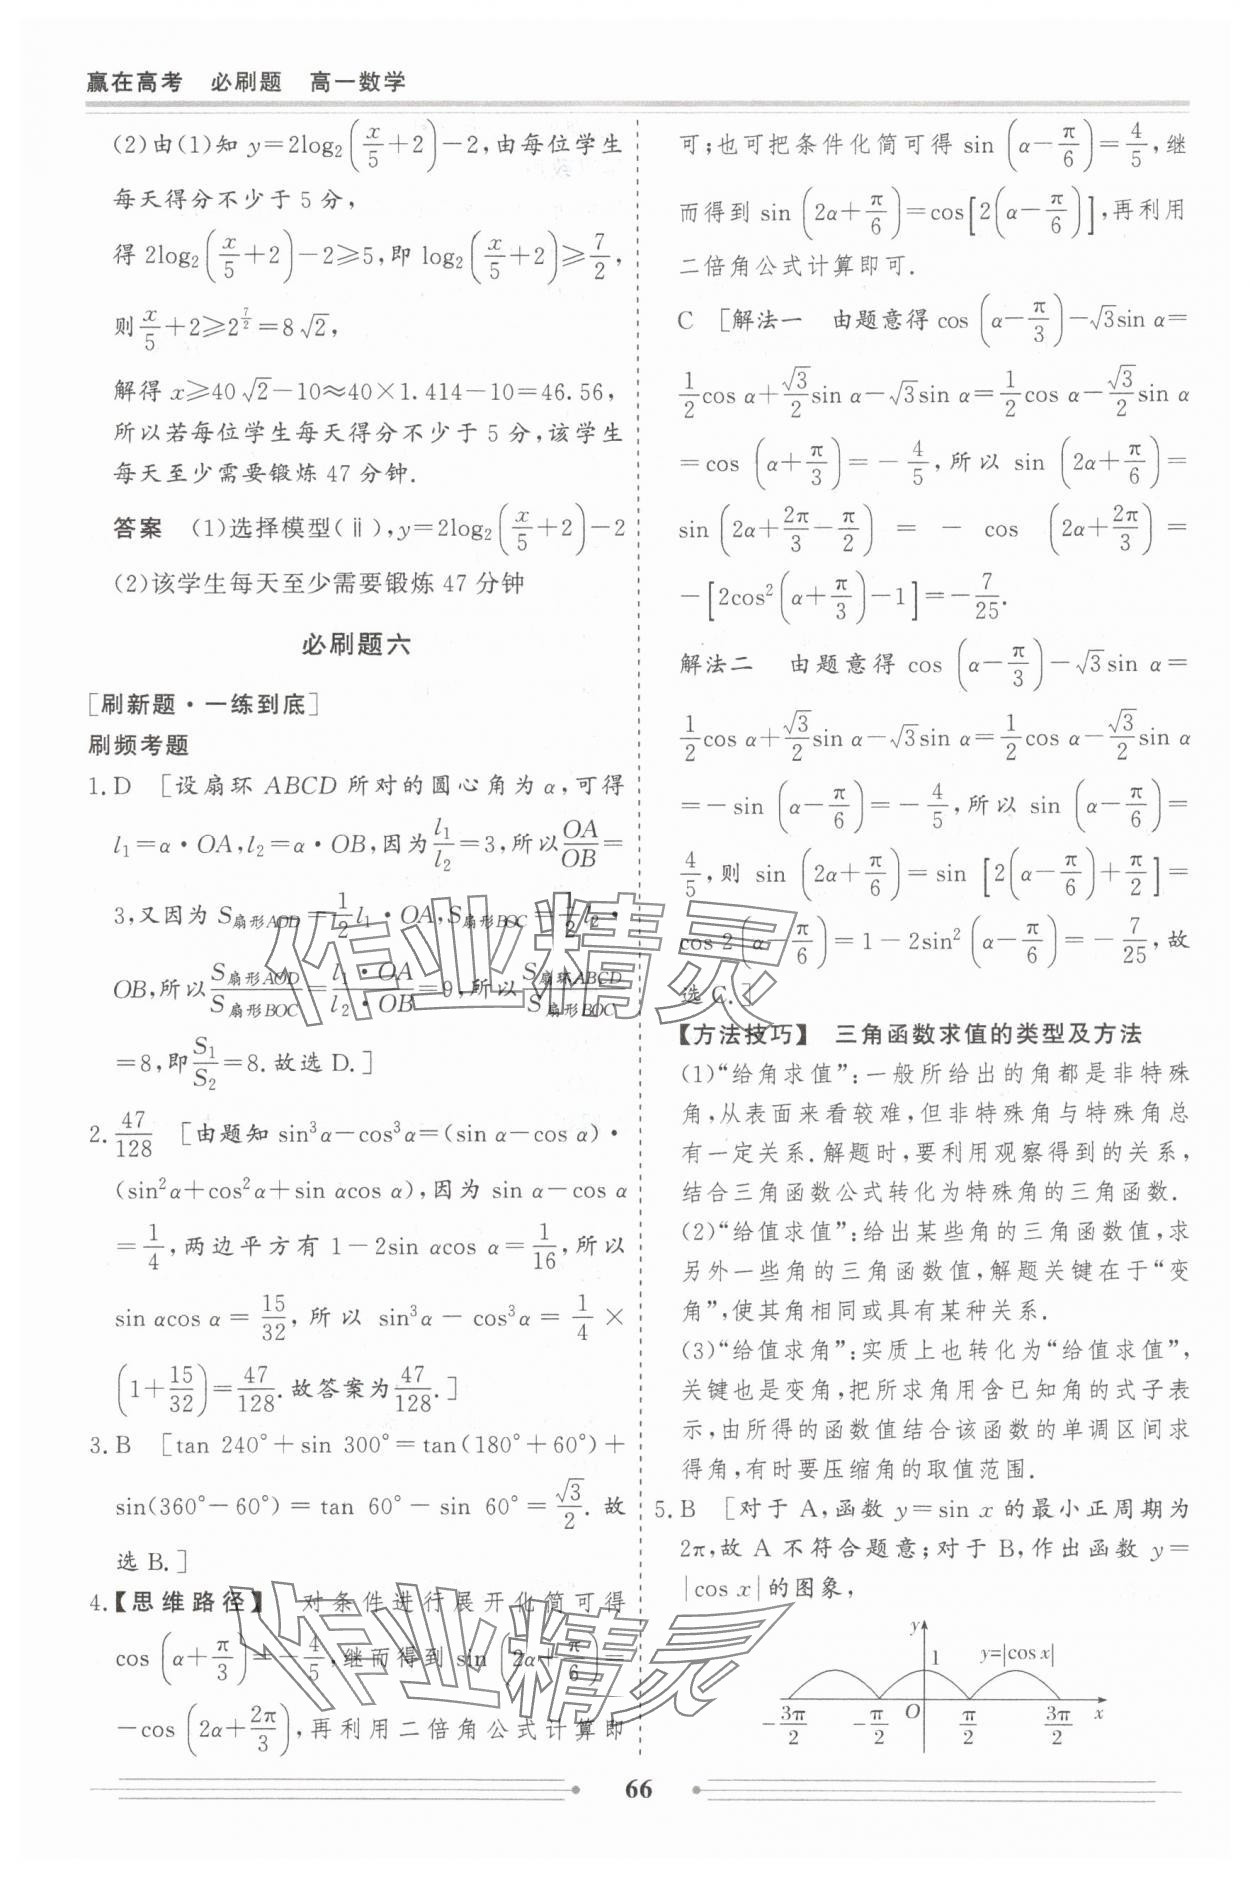 赢在高考　必刷题　高一数学
(2)由(1)知 y=2log₂(x/5+2)-2,由每位学生
每天得分不少于 5 分,
得 2log₂(x/5+2)-2≥5,即 log₂(x/5+2)≥7/2,
则 x/5+2≥2^(7/2)=8√2,
解得 x≥40√2-10≈40×1.414-10=46.56,
所以若每位学生每天得分不少于 5 分,该学生
每天至少需要锻炼 47 分钟.
答案　(1)选择模型(ⅱ),y=2log₂(x/5+2)-2
(2)该学生每天至少需要锻炼 47 分钟
必刷题六
[刷新题·一练到底]
刷频考题
1. D　[设扇环 ABCD 所对的圆心角为 α,可得
l₁=α·OA,l₂=α·OB,因为 l₁/l₂=3,所以 OA/OB=
3,又因为 S扇形AOD=1/2 l₁·OA,S扇形BOC=1/2 l₂·
OB,所以 S扇形AOD/S扇形BOC=l₁·OA/l₂·OB=9,所以 S扇环ABCD/S扇形BOC
=8,即 S₁/S₂=8.故选 D.]
2. 47/128　[由题知 sin³α-cos³α=(sin α-cos α)·
(sin²α+cos²α+sin αcos α),因为 sin α-cos α
=1/4,两边平方有 1-2sin αcos α=1/16,所以
sin αcos α=15/32,所以 sin³α-cos³α=1/4×
(1+15/32)=47/128.故答案为 47/128.]
3. B　[tan 240°+sin 300°=tan(180°+60°)+
sin(360°-60°)=tan 60°-sin 60°=√3/2.故
选 B.]
4.【思维路径】　对条件进行展开化简可得
cos(α+π/3)=-4/5,继而得到 sin(2α+π/6)=
-cos(2α+2π/3),再利用二倍角公式计算即
可;也可把条件化简可得 sin(α-π/6)=4/5,继
而得到 sin(2α+π/6)=cos[2(α-π/6)],再利用
二倍角公式计算即可.
C　[解法一　由题意得 cos(α-π/3)-√3sin α=
1/2cos α+√3/2sin α-√3sin α=1/2cos α-√3/2sin α
=cos(α+π/3)=-4/5,所以 sin(2α+π/6)=
sin(2α+2π/3-π/2)=-cos(2α+2π/3)=
-[2cos²(α+π/3)-1]=-7/25.
解法二　由题意得 cos(α-π/3)-√3sin α=
1/2cos α+√3/2sin α-√3sin α=1/2cos α-√3/2sin α
=-sin(α-π/6)=-4/5,所以 sin(α-π/6)=
4/5,则 sin(2α+π/6)=sin[2(α-π/6)+π/2]=
cos 2(α-π/6)=1-2sin²(α-π/6)=-7/25,故
选 C.]
【方法技巧】　三角函数求值的类型及方法
(1)“给角求值”:一般所给出的角都是非特殊
角,从表面来看较难,但非特殊角与特殊角总
有一定关系.解题时,要利用观察得到的关系,
结合三角函数公式转化为特殊角的三角函数.
(2)“给值求值”:给出某些角的三角函数值,求
另外一些角的三角函数值,解题关键在于“变
角”,使其角相同或具有某种关系.
(3)“给值求角”:实质上也转化为“给值求值”,
关键也是变角,把所求角用含已知角的式子表
示,由所得的函数值结合该函数的单调区间求
得角,有时要压缩角的取值范围.
5. B　[对于 A,函数 y=sin x 的最小正周期为
2π,故 A 不符合题意;对于 B,作出函数 y=
|cos x|的图象,
y
1　y=|cos x|
-3π/2　-π/2　O　π/2　3π/2　x
66
作业精灵
作业精灵